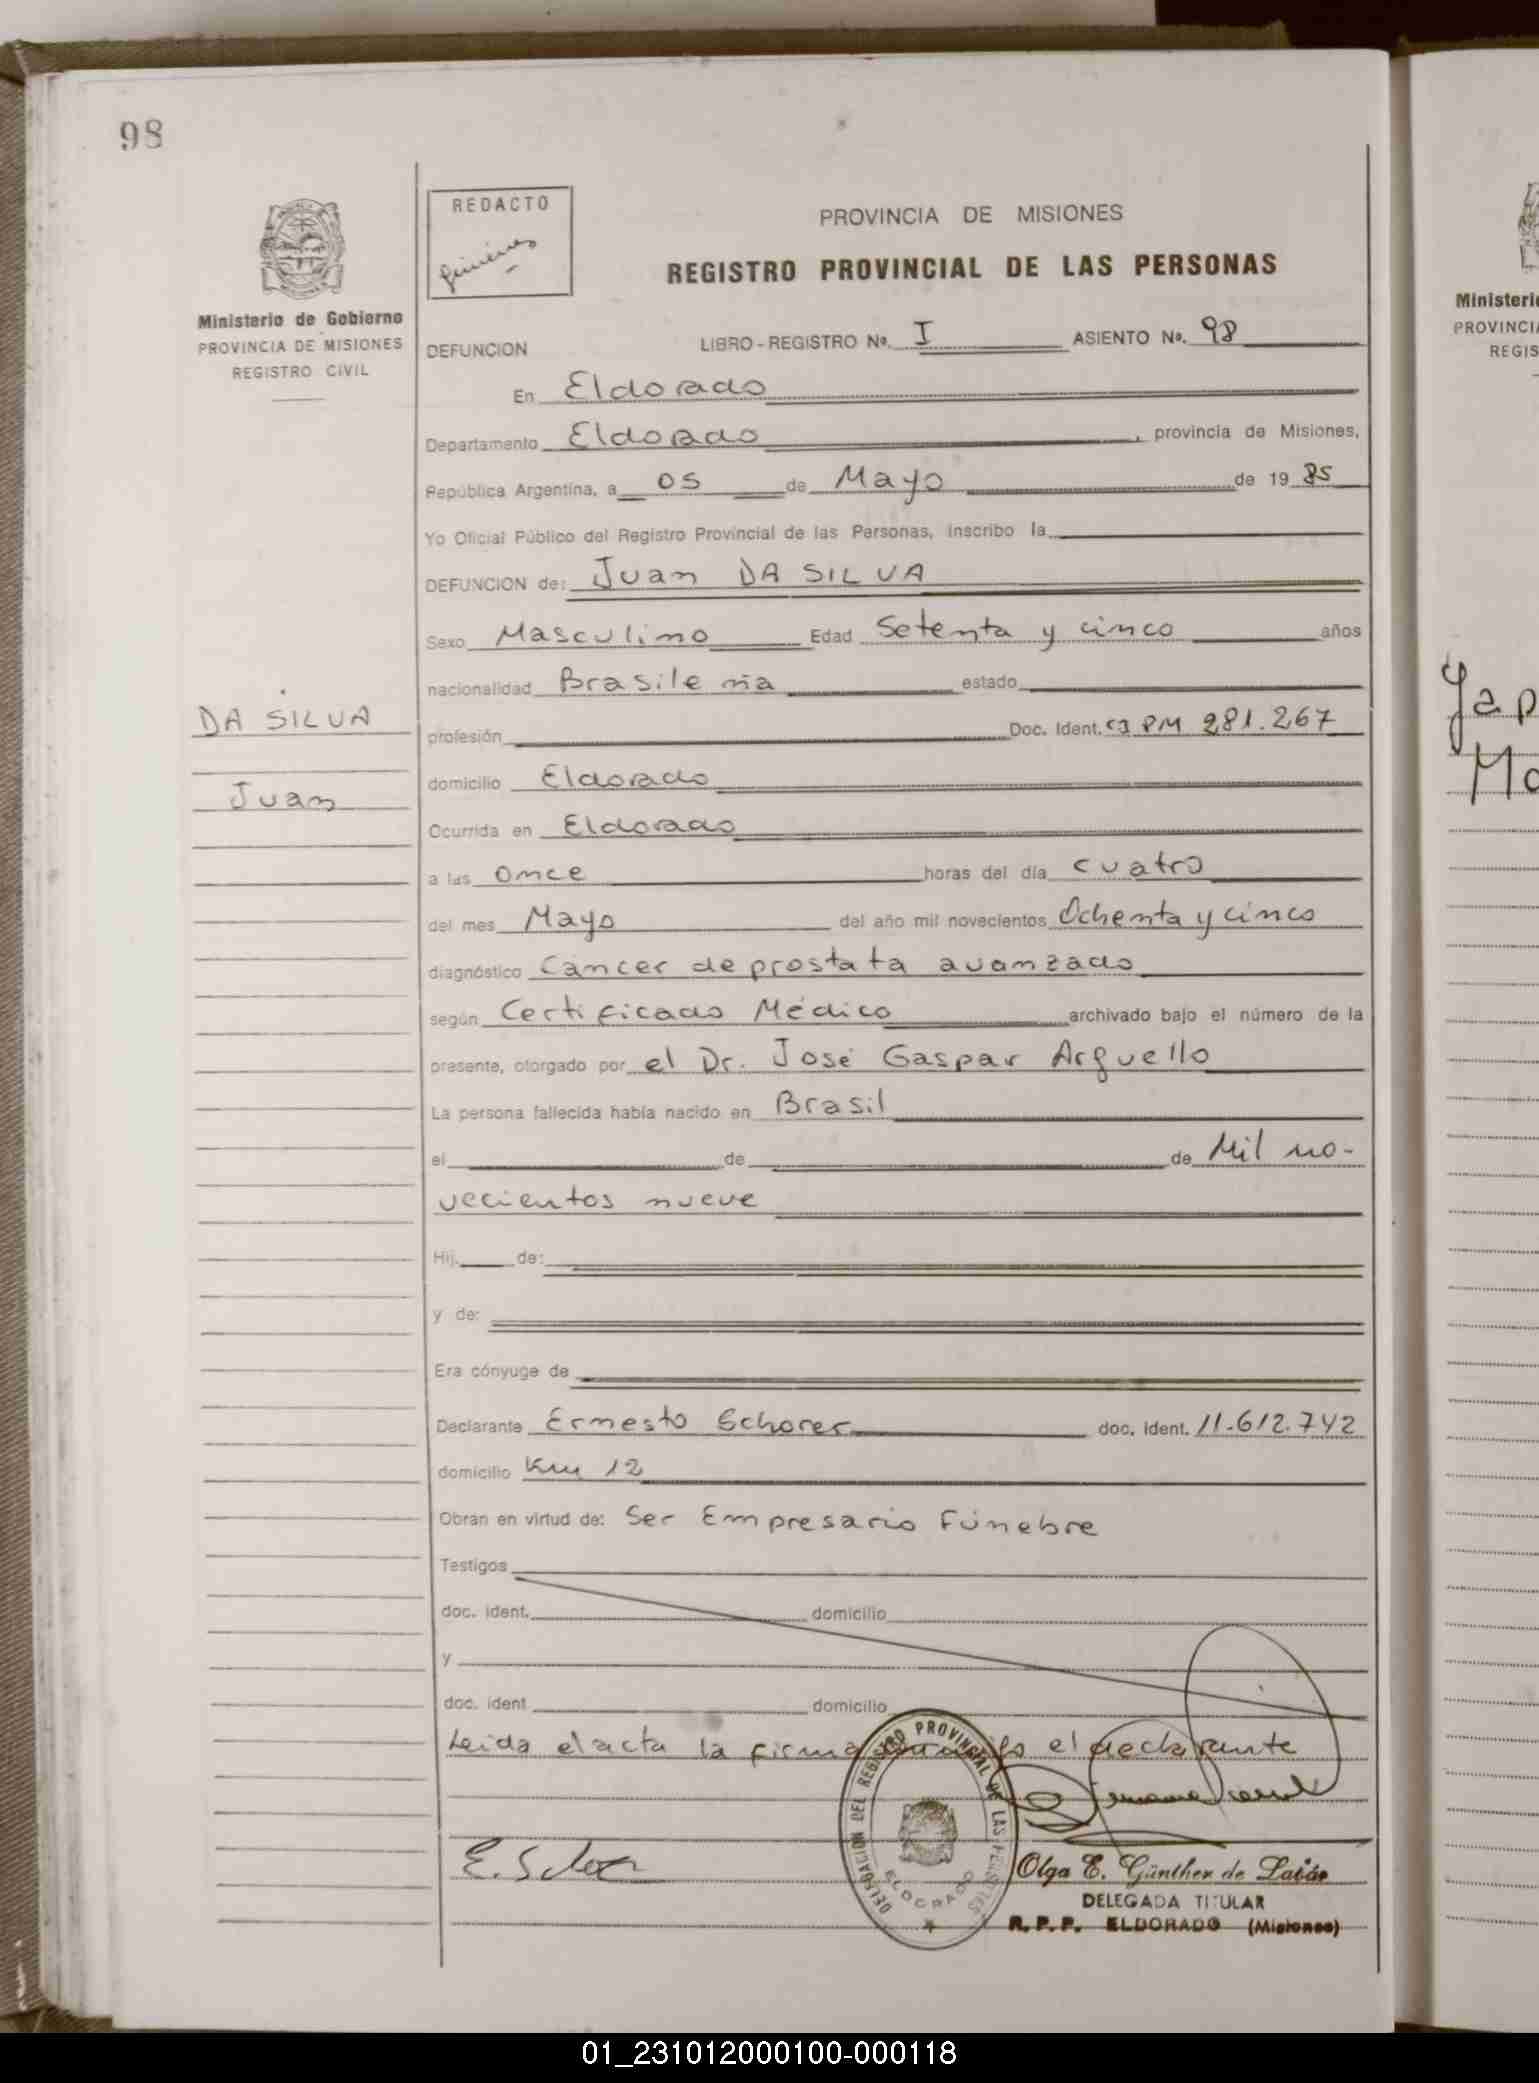 98
REDACTO
Giménez
Ministerio de Gobierno
PROVINCIA DE MISIONES
REGISTRO CIVIL
PROVINCIA DE MISIONES
REGISTRO PROVINCIAL DE LAS PERSONAS
DEFUNCION LIBRO-REGISTRO Nº. I ASIENTO Nº. 98
En Eldorado
Departamento Eldorado, provincia de Misiones,
República Argentina, a 05 de Mayo de 19 85
Yo Oficial Público del Registro Provincial de las Personas, inscribo la
DEFUNCION de: Juan DA SILVA
Sexo Masculino Edad Setenta y cinco años
nacionalidad Brasileña estado
DA SILVA
Juan
profesión Doc. Ident. CI PM 281.267
domicilio Eldorado
Ocurrida en Eldorado
a las once horas del día cuatro
del mes Mayo del año mil novecientos Ochenta y cinco
diagnóstico Cáncer de prostata avanzado
según Certificado Médico archivado bajo el número de la
presente, otorgado por el Dr. José Gaspar Arguello
La persona fallecida había nacido en Brasil
el de de Mil no-
vecientos nueve
Hij. de:
y de:
Era cónyuge de
Declarante Ernesto Schorer doc. ident. 11.612.742
domicilio Km 12
Obran en virtud de: Ser Empresario Fúnebre
Testigos
doc. ident. domicilio
y
doc. ident domicilio
Leida el acta la firma el declarante
DELEGACION DEL REGISTRO PROVINCIAL DE LAS PERSONAS
ELDORADO
E. Schorer
Olga E. Günther de Labár
DELEGADA TITULAR
R. P. P. ELDORADO (Misiones)
Ministeri
PROVINCI
REGIS
Yap
Ma
01_231012000100-000118